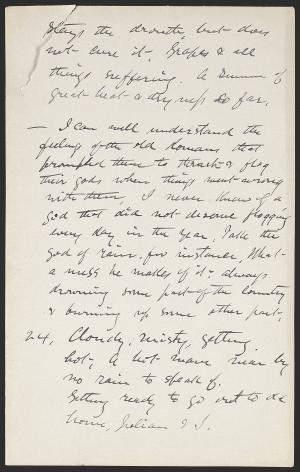 stays the drouth, but does
not cure it. Grapes & all
things suffering. A summer of
great heat & dryness so far.
— I can well understand the
feeling of the old Romans that
prompted them to thrash & flog
their gods when things went wrong
with them. I never knew of a
god that did not deserve flogging
every day in the year. Take the
god of rain, for instance. What
a mess he makes of it - always
drowning some part of the country
& burning up some other part.
24. Cloudy, misty, getting
hot. A hot wave near by
no rain to speak of.
Getting ready to go out to
home, Julian & I.